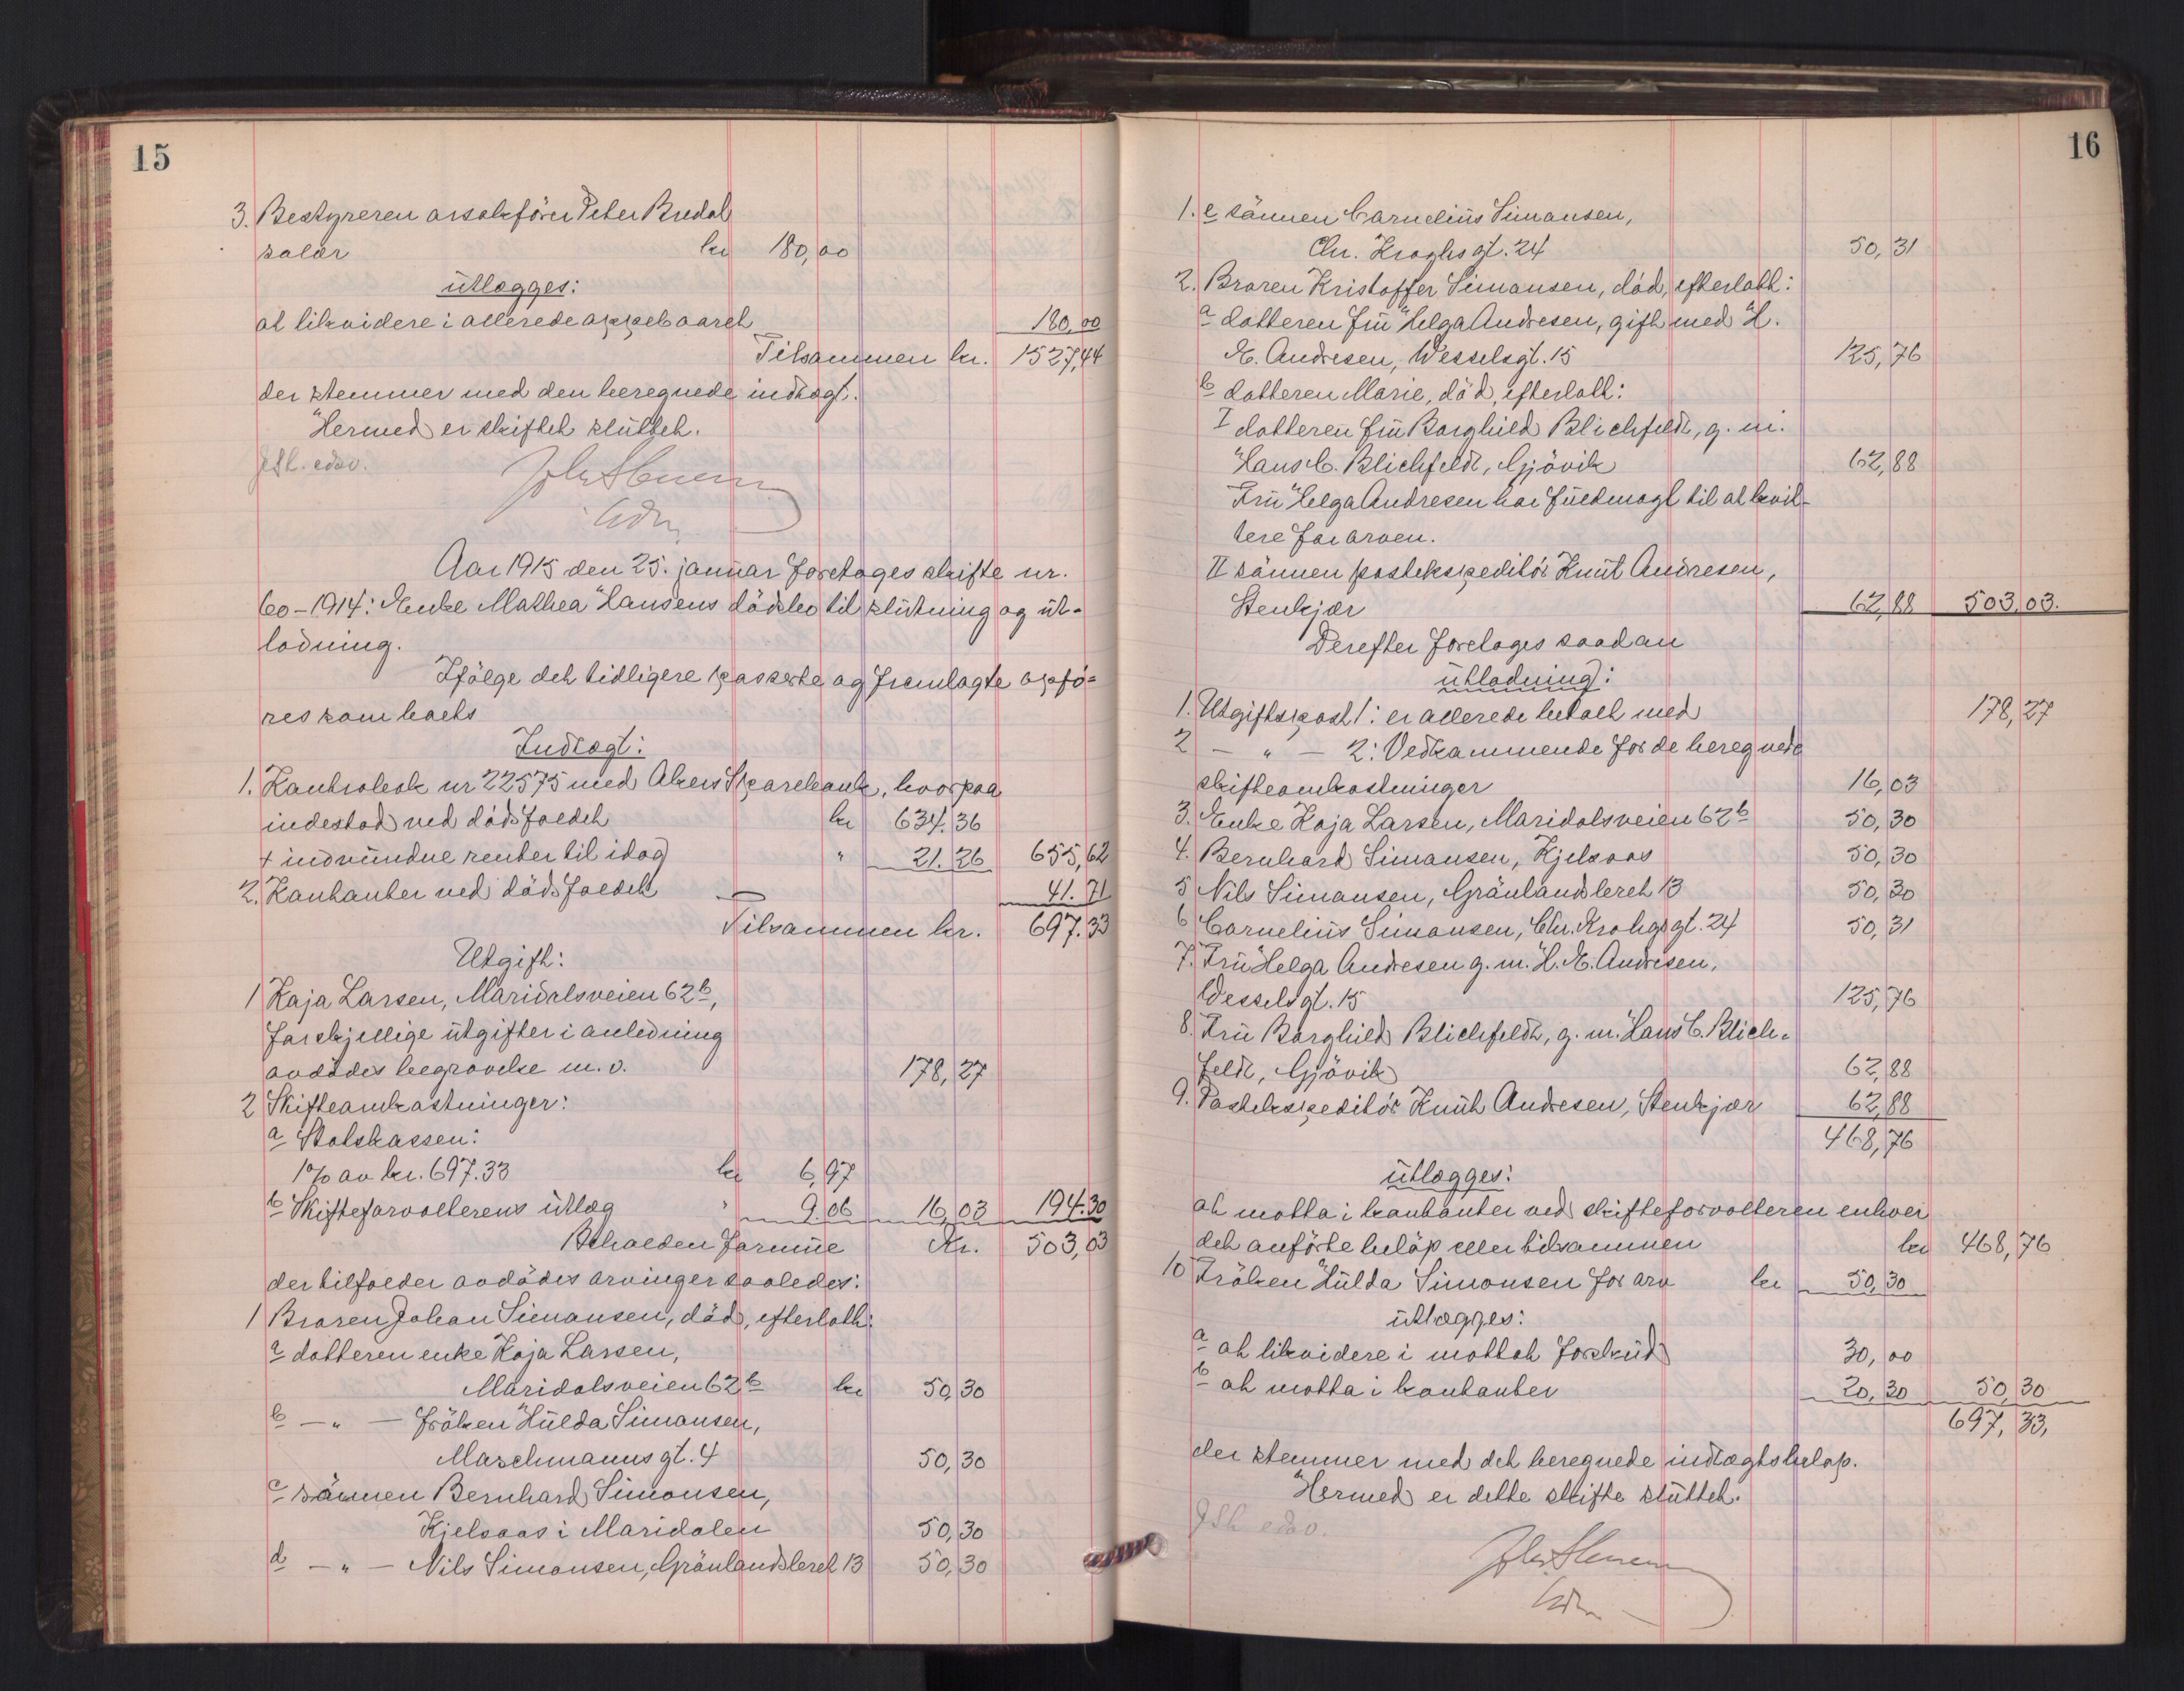 15
3. Bestyreren orsakfører Peter Bredal
salær kr 180,00
utlægges:
at likvidere i allerede oppebaaret 180,00
Tilsammen kr. 1527,44
der stemmer med den beregnede indtægt.
Hermed er skiftet sluttet.
Aar 1915 den 25. januar foretages skifte nr.
60-1914: Enke Mathea Hansens dødsbo til slutning og ut-
lodning.
Ifölge det tidligere passerte og fremlagte opfö-
res som boets
Indtægt:
1. Kontrabok nr 22575 med Akers Sparebank, hvorpaa
indestod ved dödsfaldet kr 634.36
+ indvundne renter til idag " 21.26 655,62
2. Kontanter ved dödsfaldet 41.71
Tilsammen kr. 697.33
Utgift:
1 Kaja Larsen, Maridalsveien 62b,
forskjellige utgifter i anledning
avdödes begravelse m.v. 178,27
2 Skifteomkostninger:
a Statskassen:
1% av kr. 697.33 kr 6,97
b Skifteforvalterens utlæg " 9.06 16,03 194.30
Beholden formue Kr. 503,03
der tilfalder avdödes arvinger saaledes:
1 Broren Johan Simonsen, död, efterlatt:
a datteren enke Kaja Larsen,
Maridalsveien 62b kr 50,30
b — " — fröken Hulda Simonsen,
Maschmanns gt. 4 50,30
c sönnen Bernhard Simonsen,
Kjelsaas i Maridalen 50,30
d — " — Nils Simonsen, Grönlandsleret 13 50,30
16
1. e sönnen Cornelius Simonsen,
Chr. Kroghs gt. 24 50,31
2. Broren Kristoffer Simonsen, död, efterlatt:
a datteren fru Helga Andresen, gift med H.
E. Andresen, Wesselsgt. 15 125,76
b datteren Marie, död, efterlatt:
I datteren fru Borghild Blichfeldt, g. m.
Hans C. Blichfeldt, Gjövik 62,88
Fru Helga Andresen har fuldmagt til at kvit-
tere for arven.
II sönnen postekspeditör Knut Andresen,
Stenkjær 62,88 503,03.
Derefter foretages saadan
utlodning:
1. Utgiftspost 1: er allerede betalt med 178,27
2 — " — 2: Vedkommende for de beregnede
skifteomkostninger 16,03
3. Enke Kaja Larsen, Maridalsveien 62b 50,30
4. Bernhard Simonsen, Kjelsaas 50,30
5 Nils Simonsen, Grönlandsleret 13 50,30
6 Cornelius Simonsen, Chr. Krohgsgt. 24 50,31
7. Fru Helga Andresen g. m. H. E. Andresen,
Wesselsgt. 15 125,76
8. Fru Borghild Blichfeldt, g. m. Hans C. Blich-
feldt, Gjövik 62,88
9. Postekspeditör Knut Andresen, Stenkjær 62,88
468,76
utlægges:
at motta i kontanter ved skifteforvalteren enhver
det anförte belöp eller tilsammen kr 468,76
10 Fröken Hulda Simonsen for arv kr 50,30
utlægges:
a at likvidere i mottat forskud 30,00
b at motta i kontanter 20,30 50,30
697,33,
der stemmer med det beregnede indtægtsbelöp.
Hermed er dette skifte sluttet.